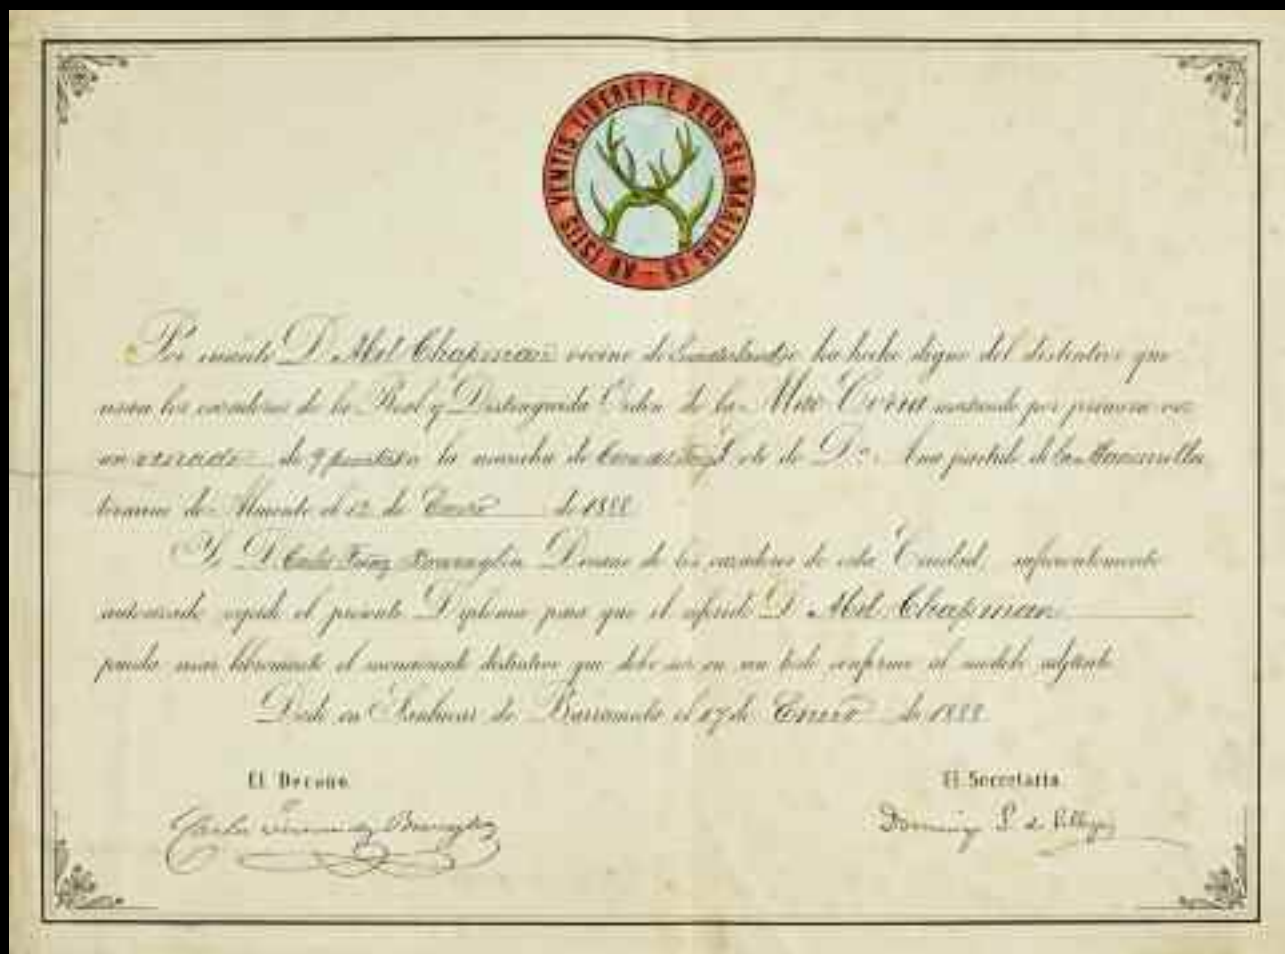 AB ISTIS VENTIS LIBERET TE DEUS SI MARITUS ES –
Por cuanto D. Abel Chapman vecino de se ha hecho digno del distintivo que
usan los cazadores de la Real y Distinguida Orden de la matando por primera vez
un venado de 9 puntas en la mancha de Coto de D.ª Ana partido de la
término de Almonte el 12 de Enero de 1888.
Yo, D. Carlos Decano de los cazadores de esta Ciudad, suficientemente
autorizado expido el presente Diploma para que el referido D. Abel Chapman
pueda usar libremente el mencionado distintivo que debe ser en un todo conforme al modelo adjunto
Dado en Sanlúcar de Barrameda el 17 de Enero de 1888.
El Decano
El Secretario
Carlos
Domingo